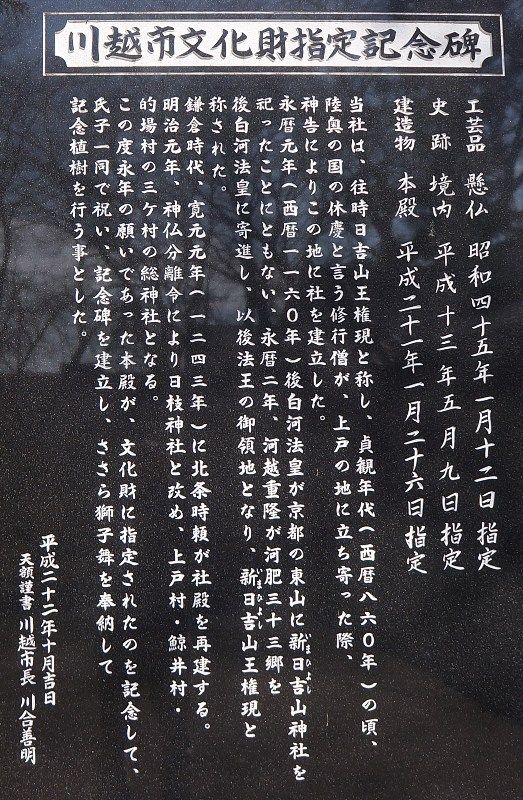 川越市文化財指定記念碑
工芸品 懸仏 昭和四十五年一月十二日 指定
史跡 境内 平成十三年五月九日 指定
建造物 本殿 平成二十一年一月二十六日 指定
当社は、往時日吉山王権現と称し、貞観年代(西暦八六〇年)の頃、
陸奥の国の休慶と言う修行僧が、上戸の地に立ち寄った際、
神告によりこの地に社を建立した。
永暦元年(西暦一一六〇年)後白河法皇が京都の東山に新日吉山神社を
いまひよし
祀ったことにともない、永暦二年、河越重隆が河肥三十三郷を
後白河法皇に寄進し、以後法王の御領地となり、新日吉山王権現と
いまひよし
称された。
鎌倉時代、寛元元年(一二四三年)に北条時頼が社殿を再建する。
明治元年、神仏分離令により日枝神社と改め、上戸村・鯨井村・
的場村の三ケ村の総神社となる。
この度永年の願いであった本殿が、文化財に指定されたのを記念して、
氏子一同で祝い、記念碑を建立し、ささら獅子舞を奉納して
記念植樹を行う事とした。
平成二十二年十月吉日
天額謹書 川越市長 川合善明